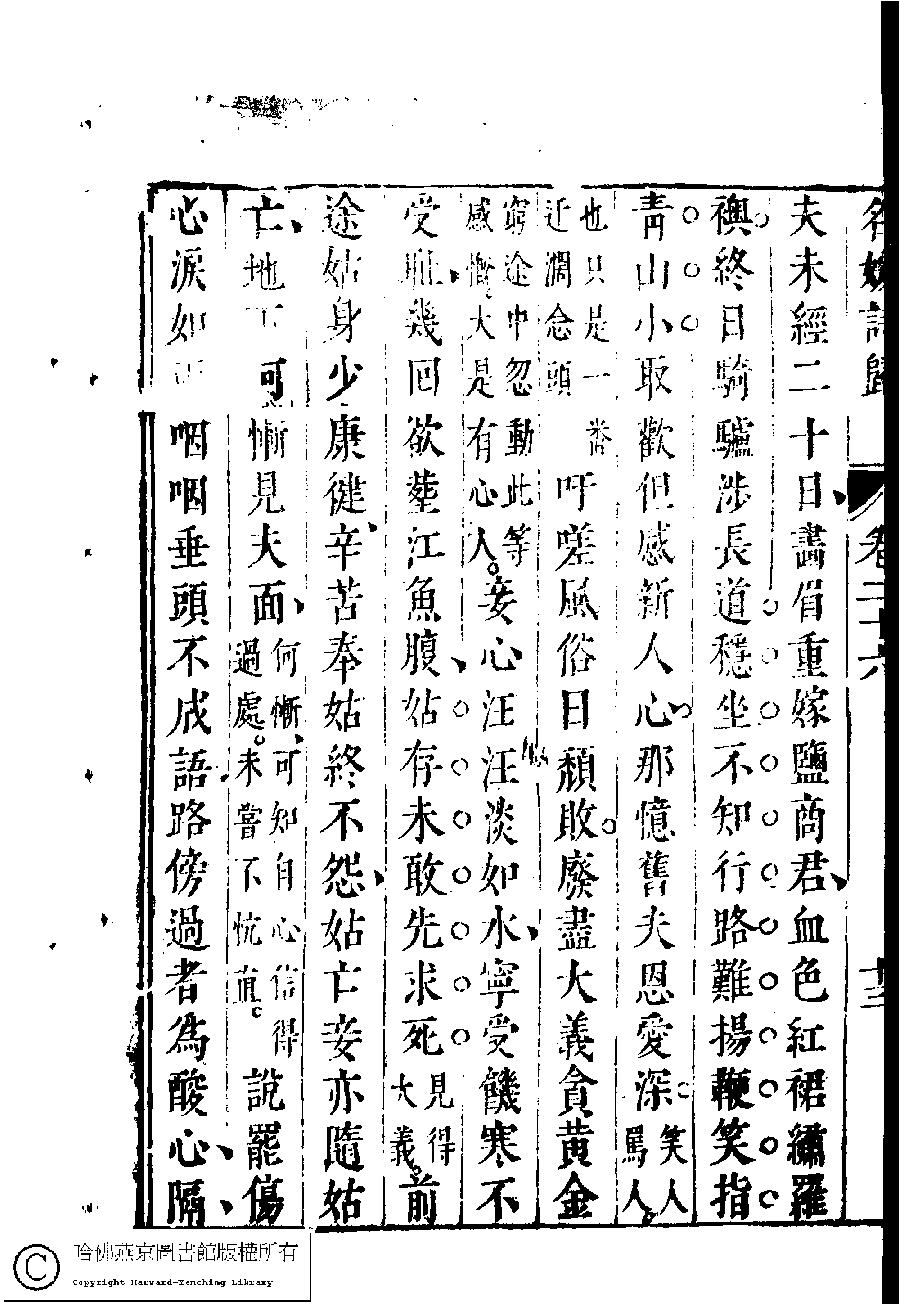 名媛詩歸 卷二十六 十三
夫未經二十日畵眉重嫁鹽商君血色紅裙繡羅
襖終日騎驢涉長道穩坐不知行路難揚鞭笑指
青山小取歡但感新人心那憶舊夫恩愛深笑人罵人
也只是一畨迂濶念頭吁嗟風俗日頹敗廢盡大義貪黃金
窮途中忽動此等感慨大是有心人妾心汪汪淡如水寧受饑寒不
受耻幾回欲塟江魚腹姑存未敢先求死見得大義前
途姑身少康健辛苦奉姑終不怨姑亡妾亦隨姑
亡地下可慚見夫面何慚可知自心信得過處未嘗不忼直說罷傷
心淚如雨咽咽垂頭不成語路傍過者為酸心隔
哈佛燕京圖書館版權所有
Copyright Harvard-Yenching Library